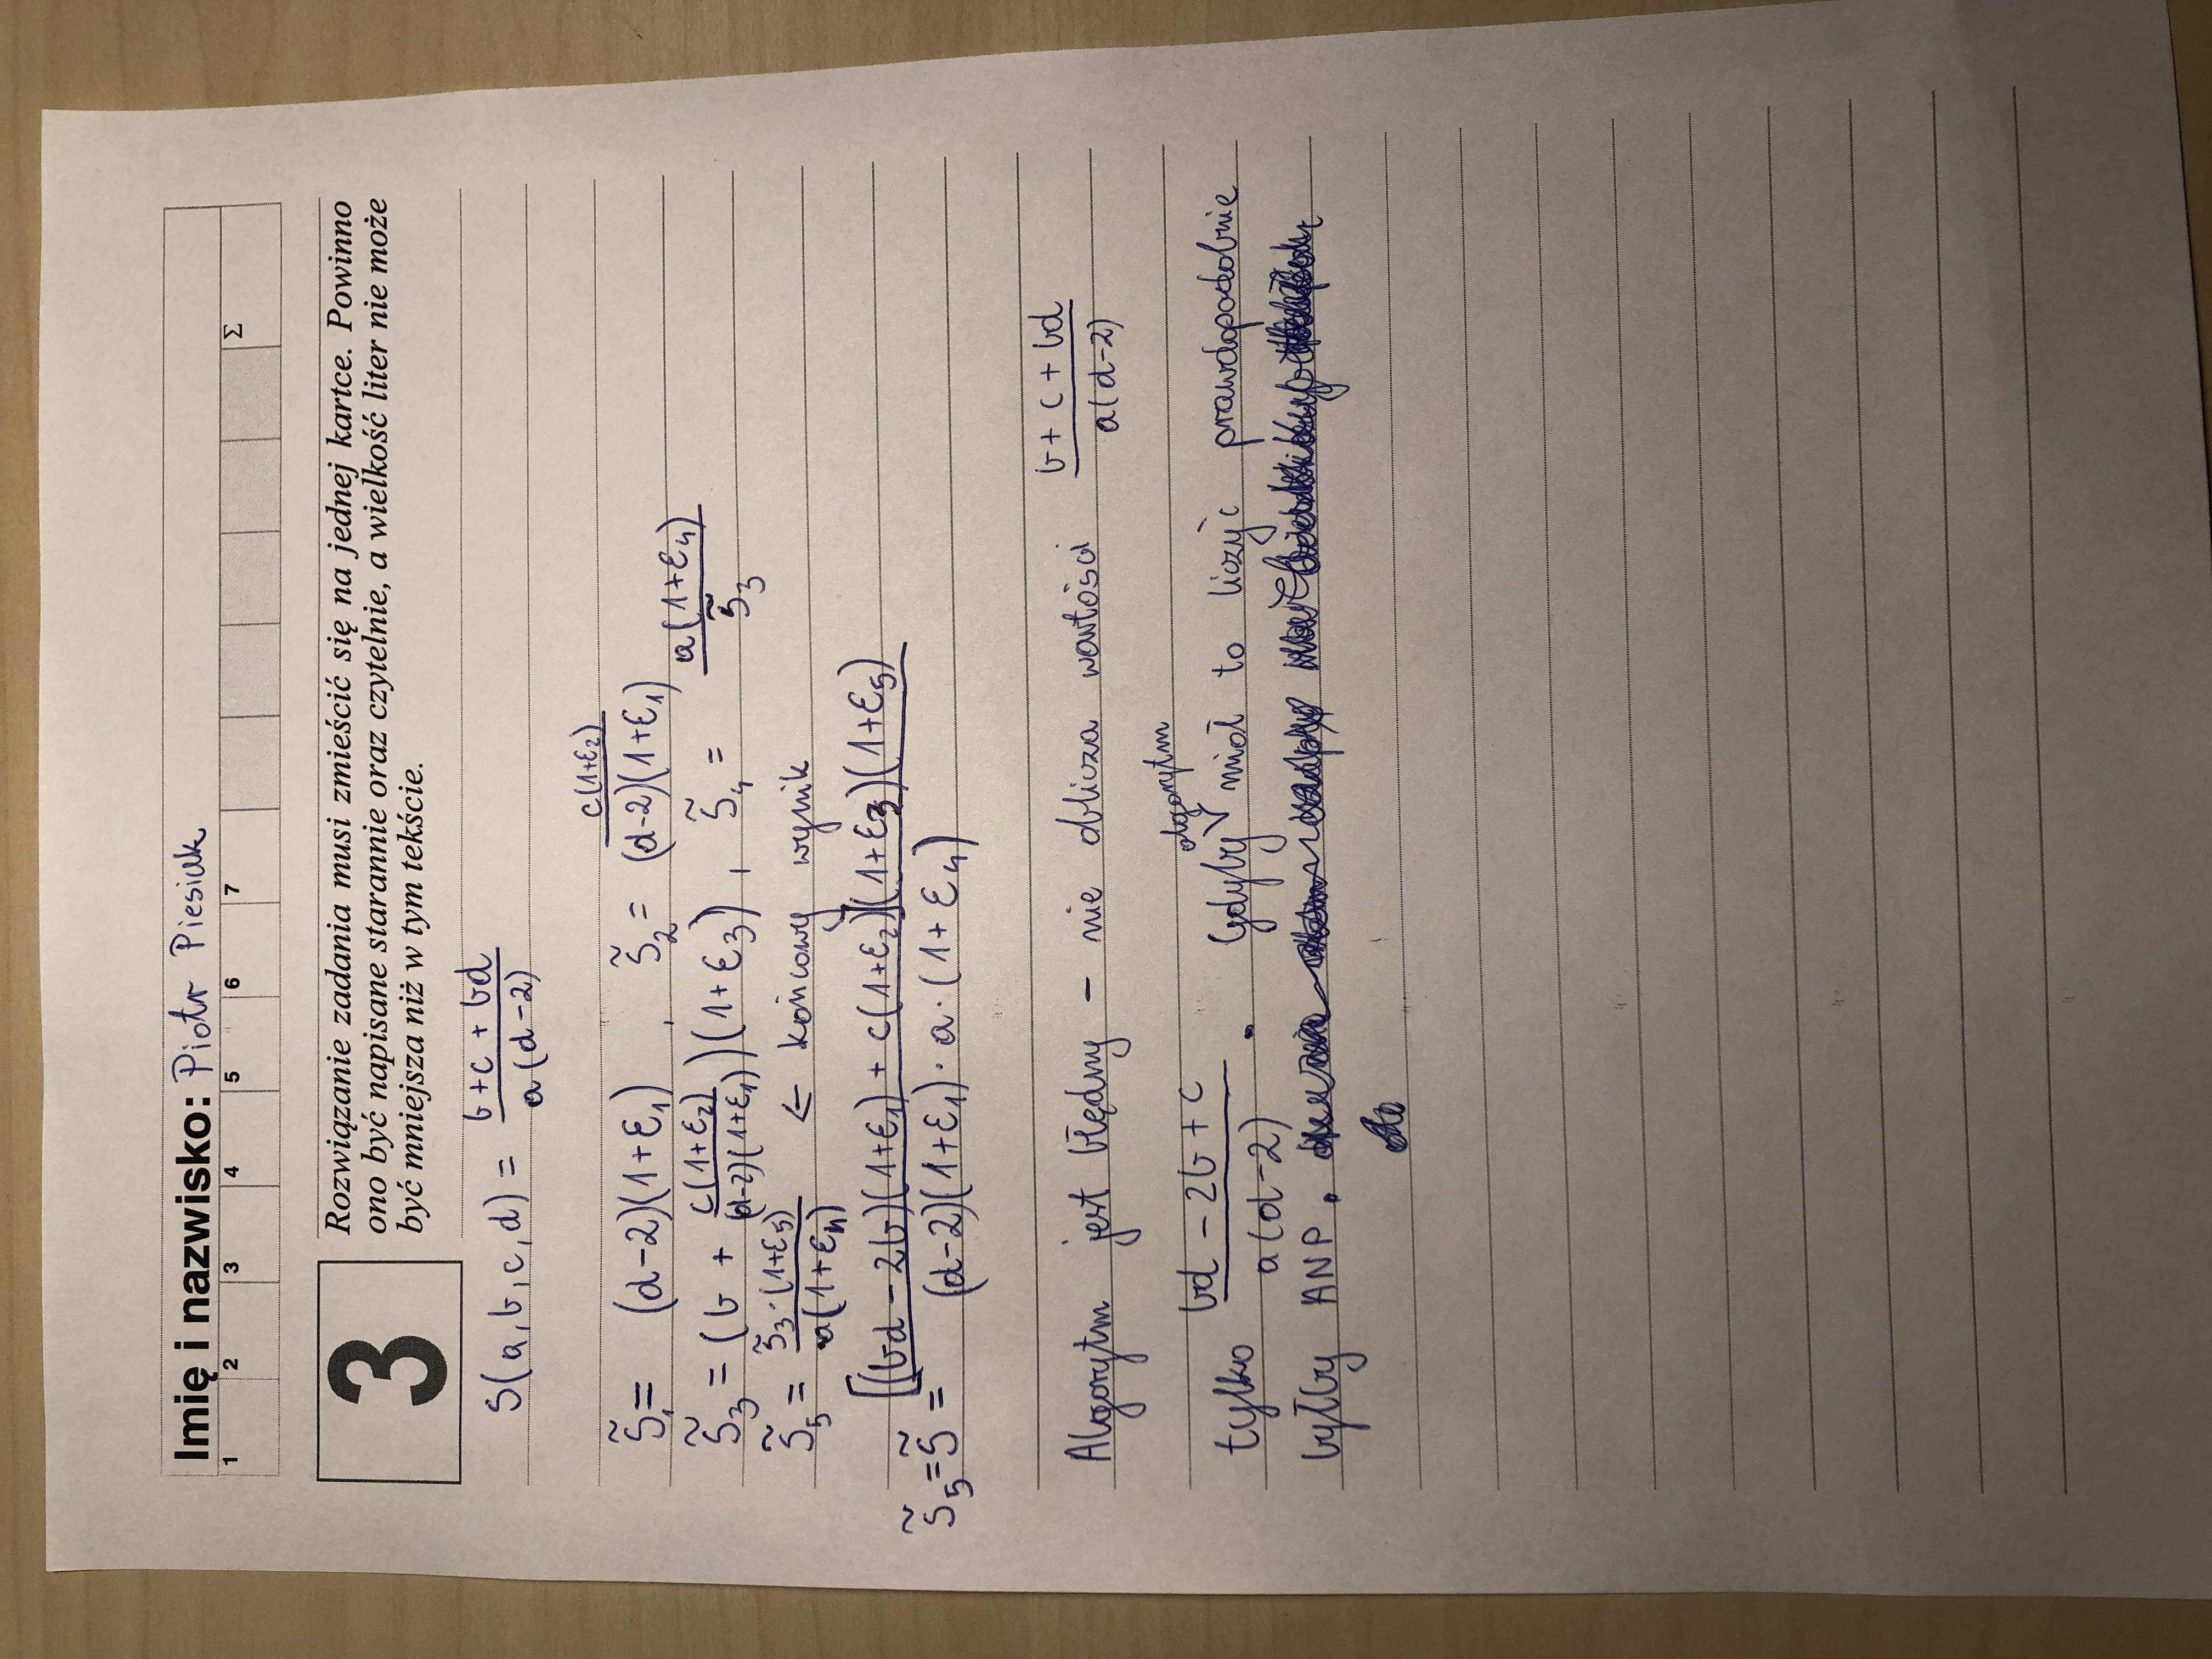 Imię i nazwisko: Piotr Piesiak
1 2 3 4 5 6 7 Σ
3
Rozwiązanie zadania musi zmieścić się na jednej kartce. Powinno
ono być napisane starannie oraz czytelnie, a wielkość liter nie może
być mniejsza niż w tym tekście.
S(a,b,c,d) = \frac{b+c+bd}{a(d-2)}
\tilde{S}_1 = (d-2)(1+ε_1) , \tilde{S}_2 = \frac{c(1+ε_2)}{(d-2)(1+ε_1)}
\tilde{S}_3 = (b + \frac{c(1+ε_2)}{(d-2)(1+ε_1)})(1+ε_3) , \tilde{S}_4 = \frac{a(1+ε_4)}{\tilde{S}_3}
\tilde{S}_5 = \frac{\tilde{S}_3·(1+ε_5)}{a(1+ε_4)} ← końcowy wynik
\tilde{S}_5 = \tilde{S} = \frac{[(bd-2b)(1+ε_1) + c(1+ε_2)](1+ε_3)(1+ε_5)}{(d-2)(1+ε_1)·a·(1+ε_4)}
Algorytm jest błędny – nie oblicza wartości \frac{b+c+bd}{a(d-2)}
tylko \frac{bd-2b+c}{a(d-2)} . Gdyby algorytm miał to liczyć prawdopodobnie
byłby ANP.